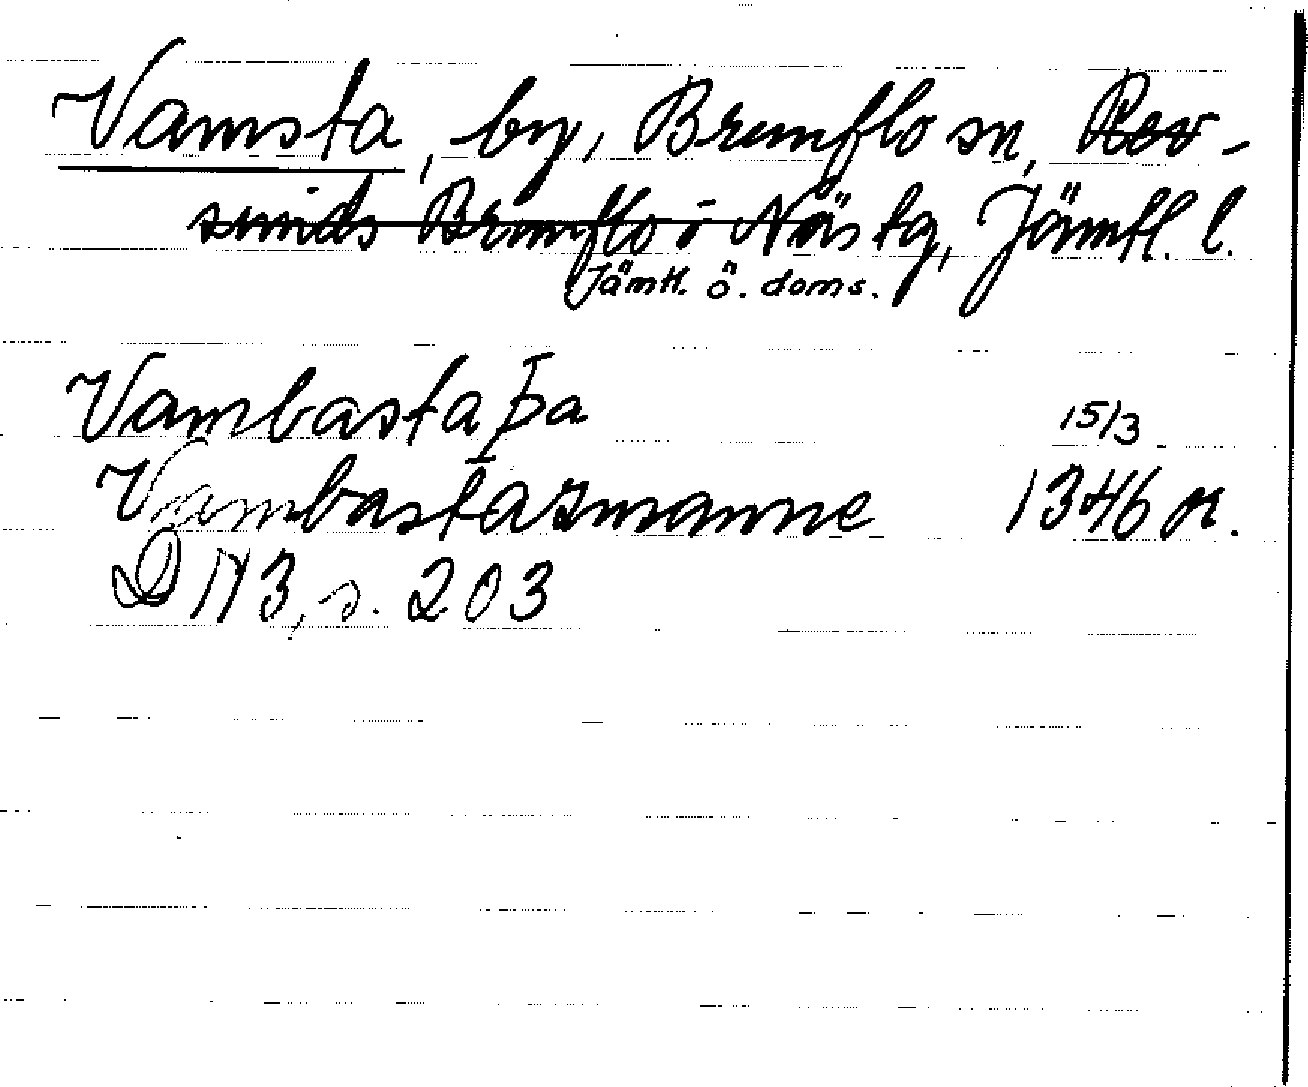 Vamsta, by, Brunflo sn, Rev-
sunds Brunflo o Näs tg, Jämtl. l.
Jämtl. ö. doms.
Vambasta þa 15/3
Vambastazmanne 1346 or.
DN 3, s. 203